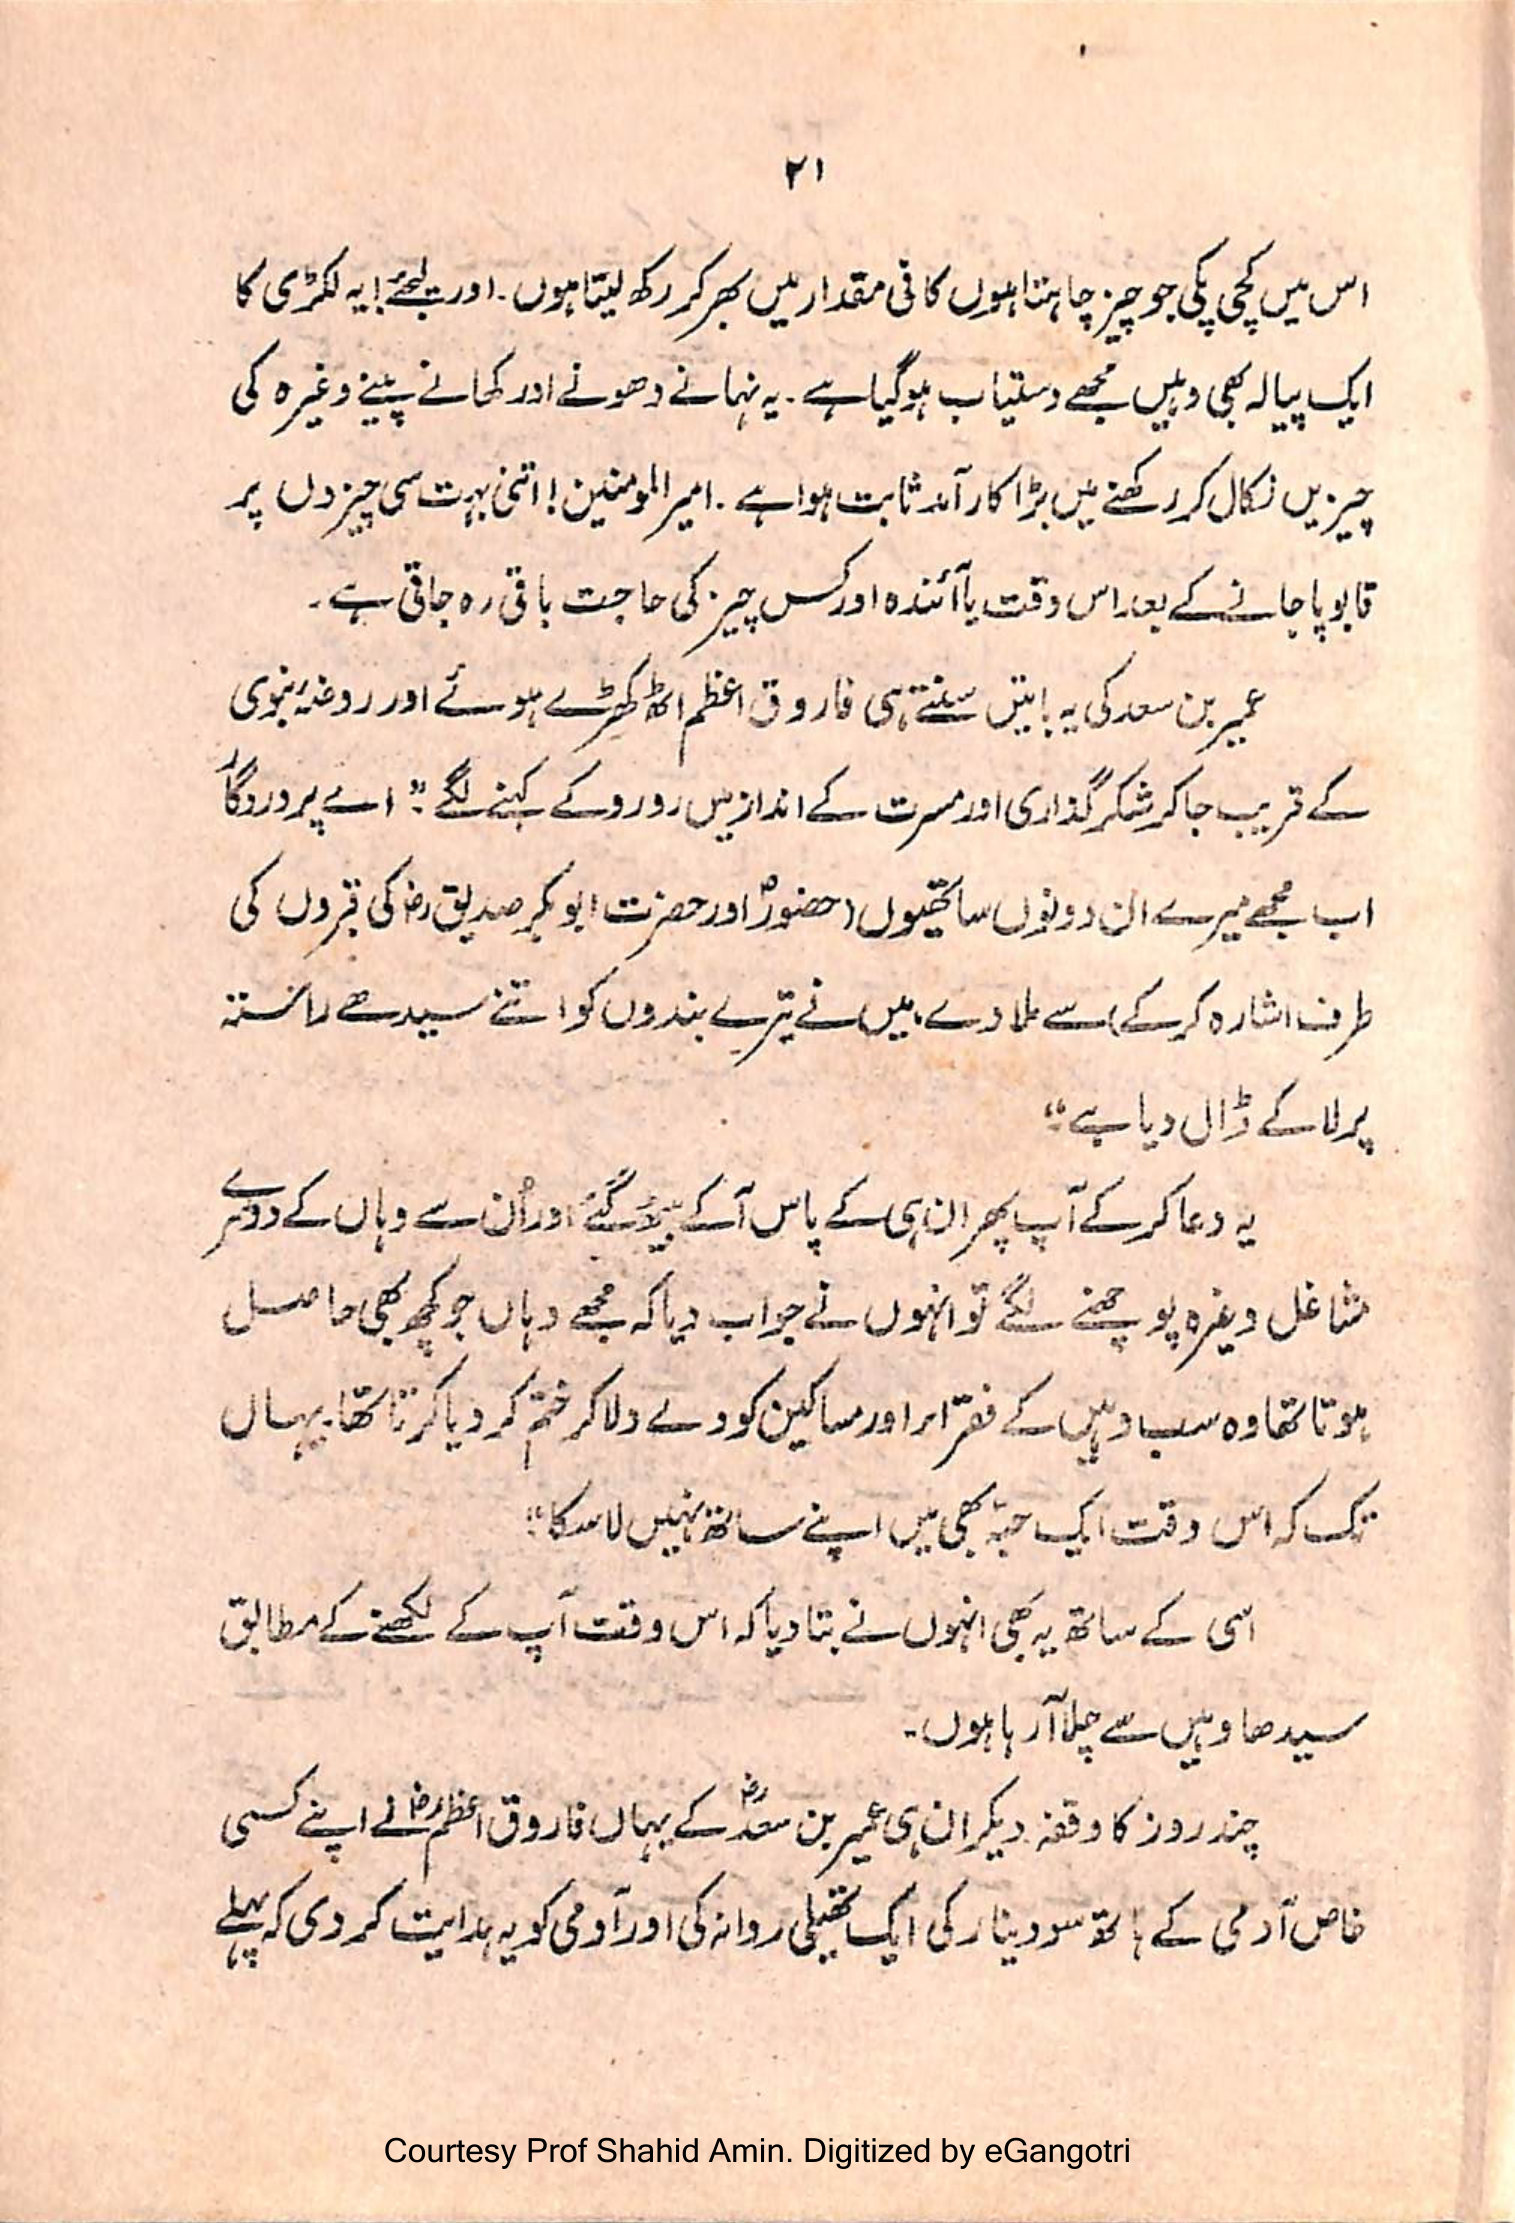 ۲۱
اس میں کچی پکی جو چیز چاہتا ہوں کافی مقدار میں بھر کر رکھ لیتا ہوں۔ اور لیجئے! یہ لکڑی کا
ایک پیالہ بھی وہیں مجھے دستیاب ہو گیا ہے۔ یہ نہانے دھونے اور کھانے پینے وغیرہ کی
چیزیں نکال کر رکھنے میں بڑا کار آمد ثابت ہوا ہے۔ امیر المومنین! اتنی بہت سی چیزوں پر
قابو پا جانے کے بعد اس وقت یا آئندہ اور کس چیز کی حاجت باقی رہ جاتی ہے۔
عمیر بن سعد کی یہ باتیں سنتے ہی فاروق اعظم اٹھ کھڑے ہوئے اور روضۂ نبوی
کے قریب جا کر شکر گذاری اور مسرت کے انداز میں رو رو کے کہنے لگے :" اے پروردگار
اب مجھے میرے ان دونوں ساتھیوں (حضورؐ اور حضرت ابو بکر صدیق رض کی قبروں کی
طرف اشارہ کر کے) سے ملا دے، میں نے تیرے بندوں کو اتنے سیدھے راستہ
پر لا کے ڈال دیا ہے"
یہ دعا کر کے آپ پھر ان ہی کے پاس آ کے بیٹھ گئے اور اُن سے وہاں کے دوسرے
مشاغل وغیرہ پوچھنے لگے تو انہوں نے جواب دیا کہ مجھے وہاں جو کچھ بھی حاصل
ہوتا تھا وہ سب وہیں کے فقراء اور مساکین کو دے دلا کر ختم کر دیا کرتا تھا۔ یہاں
تک کہ اس وقت ایک حبّہ بھی میں اپنے ساتھ نہیں لا سکا"
اسی کے ساتھ یہ بھی انہوں نے بتا دیا کہ اس وقت آپ کے لکھنے کے مطابق
سیدھا وہیں سے چلا آ رہا ہوں۔
چند روز کا وقفہ دیکر ان ہی عمیر بن سعدؓ کے یہاں فاروق اعظمؓ نے اپنے کسی
خاص آدمی کے ہاتھ سو دینار کی ایک تھیلی روانہ کی اور آدمی کو یہ ہدایت کر دی کہ پہلے
Courtesy Prof Shahid Amin. Digitized by eGangotri